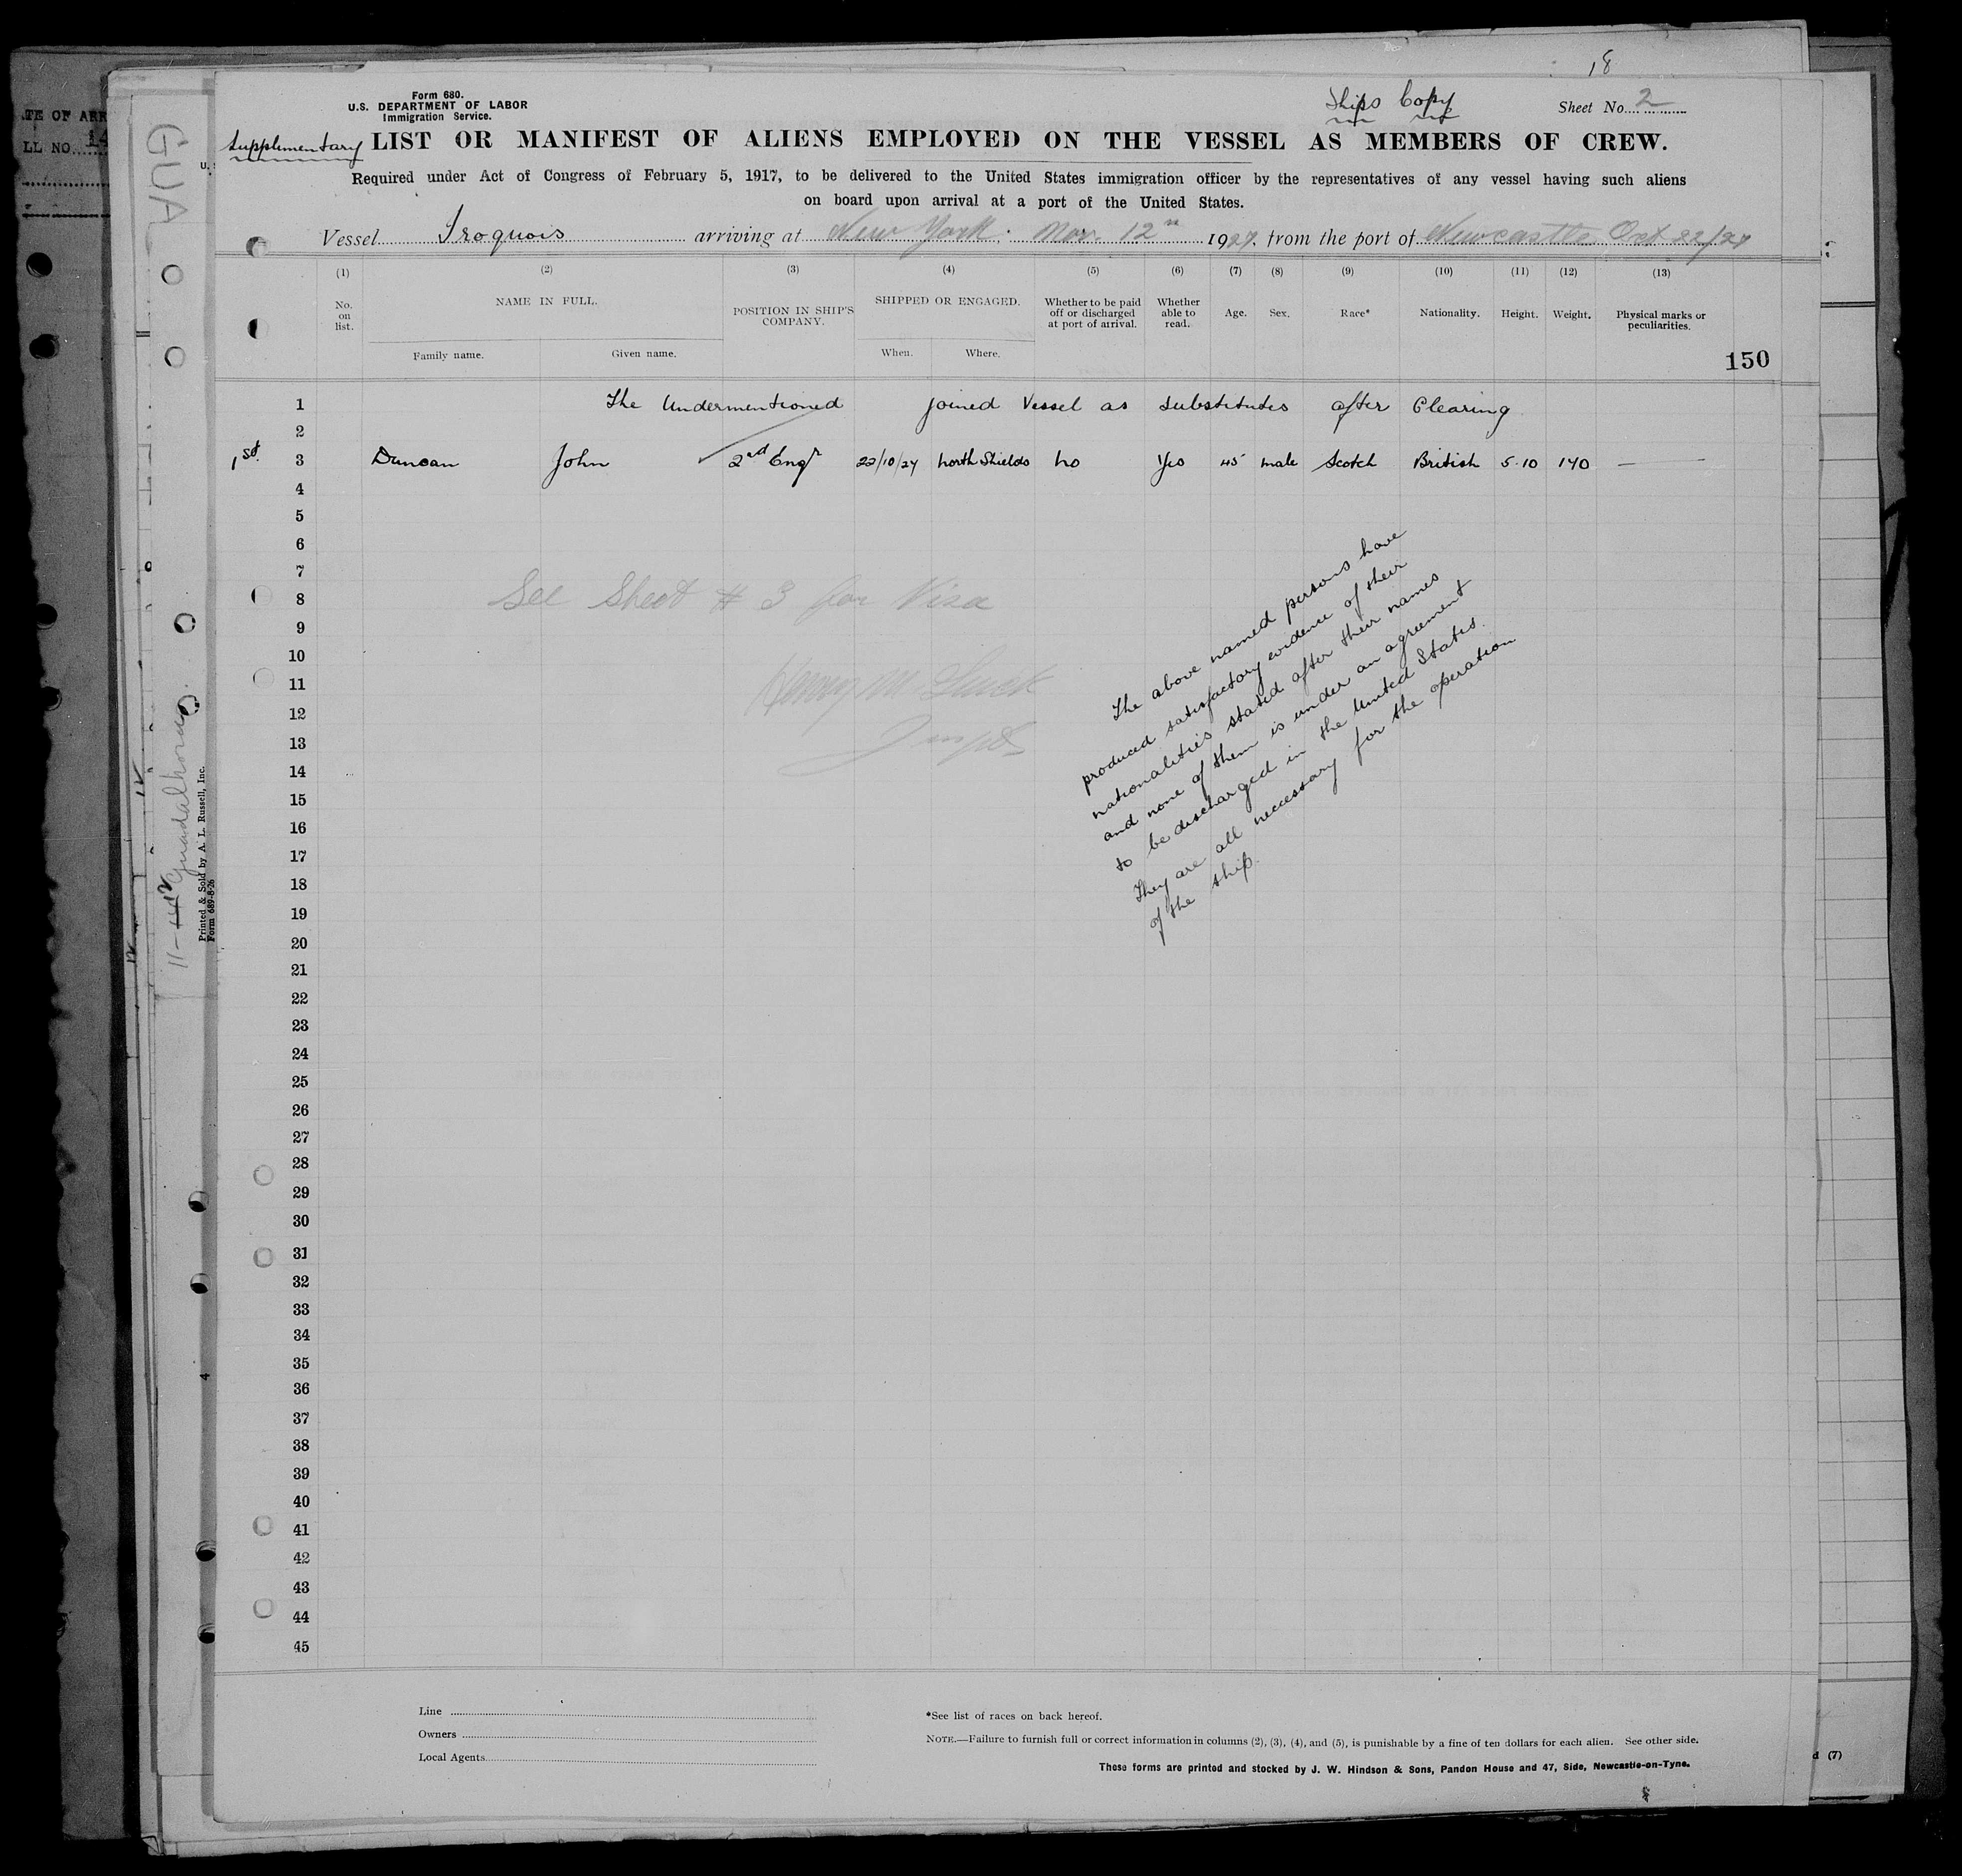 18
Form 680.
U.S. DEPARTMENT OF LABOR
Immigration Service.
Ships Copy
Sheet No. 2
Supplimentary LIST OR MANIFEST OF ALIENS EMPLOYED ON THE VESSEL AS MEMBERS OF CREW.
Required under Act of Congress of February 5, 1917, to be delivered to the United States immigration officer by the representatives of any vessel having such aliens
on board upon arrival at a port of the United States.
Vessel Iroquois arriving at New York. Nov. 12th 1927. from the port of Newcastle Oct 22/27
(1) (2) (3) (4) (5) (6) (7) (8) (9) (10) (11) (12) (13)
No. on list. NAME IN FULL. POSITION IN SHIP'S COMPANY. SHIPPED OR ENGAGED. Whether to be paid off or discharged at port of arrival. Whether able to read. Age. Sex. Race* Nationality. Height. Weight. Physical marks or peculiarities.
Family name. Given name. When. Where.
150
1 The Undermentioned joined Vessel as Substitutes after Clearing
2
1st. 3 Duncan John 2nd Engr 22/10/27 North Shields No Yes 45 male Scotch British 5-10 140 — —
4
5
6
7
8 See Sheet # 3 for Visa
9
10
11
12
13
14
15
16
17
18
19
20
21
22
23
24
25
26
27
28
29
30
31
32
33
34
35
36
37
38
39
40
41
42
43
44
45
The above named persons have
produced satisfactory evidence of their
nationalities stated after their names
and none of them is under an agreement
to be discharged in the United States.
They are all necessary for the operation
of the ship.
Line
Owners
Local Agents
*See list of races on back hereof.
NOTE.—Failure to furnish full or correct information in columns (2), (3), (4), and (5), is punishable by a fine of ten dollars for each alien. See other side.
These forms are printed and stocked by J. W. Hindson & Sons, Pandon House and 47, Side, Newcastle-on-Tyne.
GUA
Printed & Sold by A. L. Russell, Inc.
Form 689-8-26
(7)